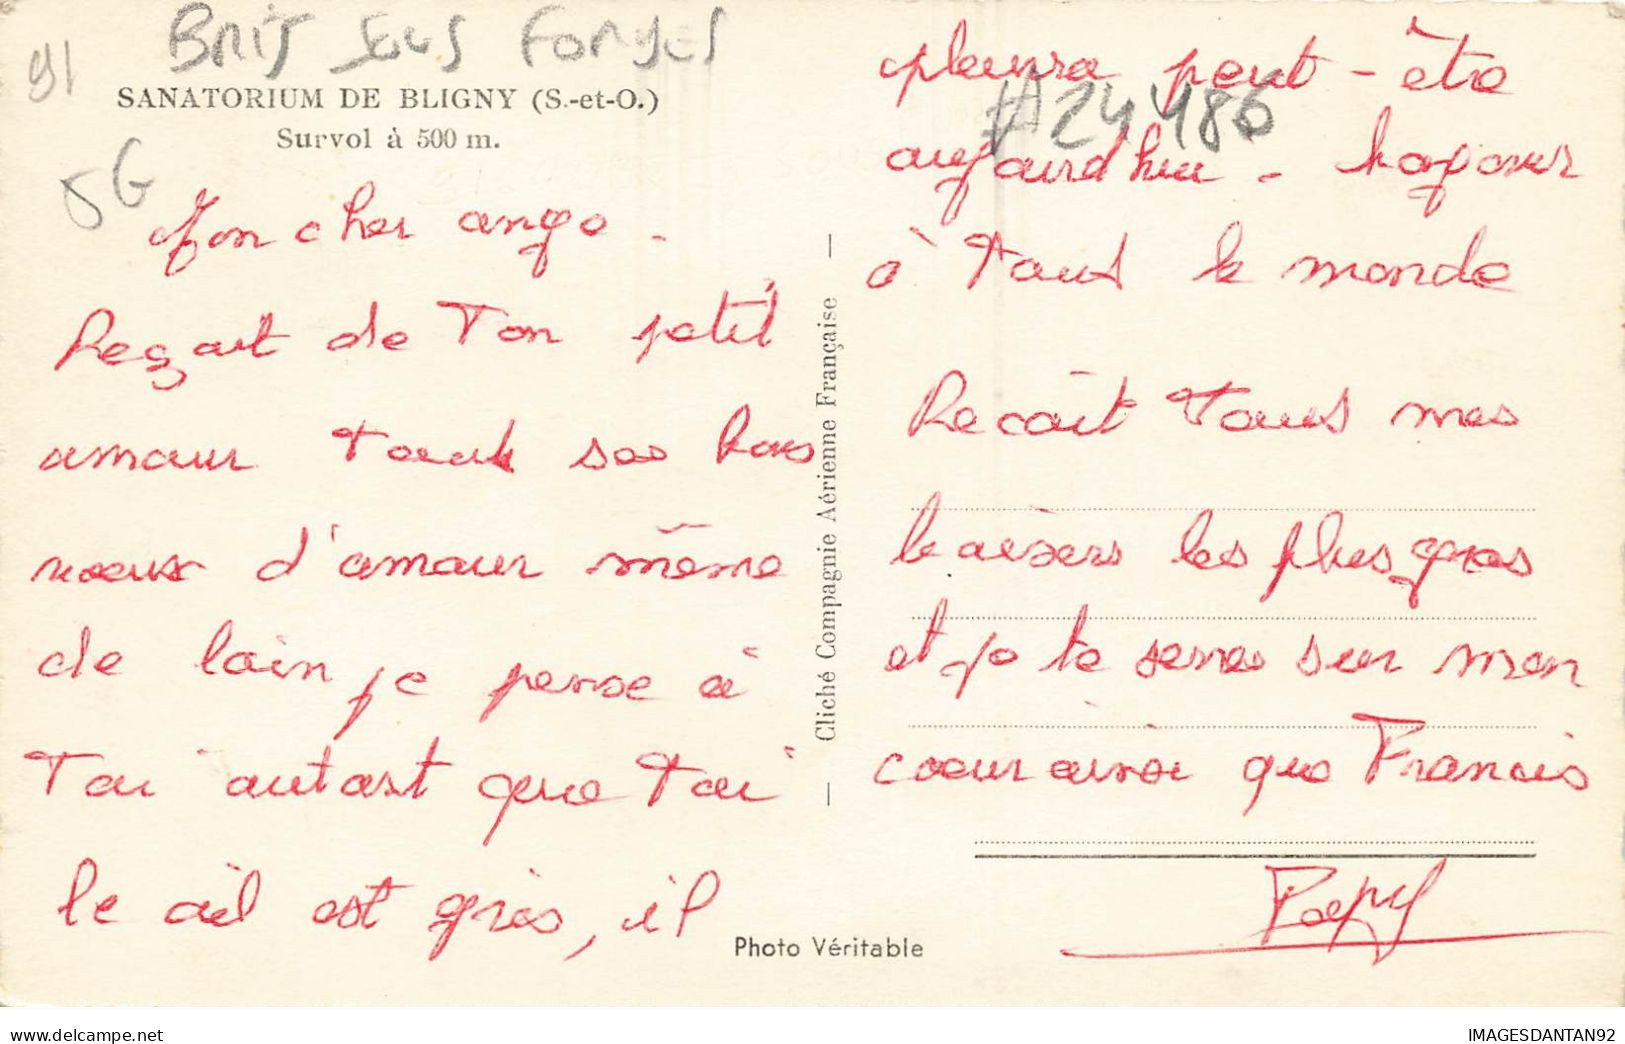 91
BRIS SOUS FORGES
SANATORIUM DE BLIGNY (S.-et-O.)
Survol à 500 m.
5G
Mon cher ange -
Reçoit de Ton petit
amour Tout ses bons
voeux d'amour même
de loin je pense à
Toi autant que Toi
le ciel est gris, il
Cliché Compagnie Aérienne Française
Photo Véritable
#24486
pleuvra peut-être
aujourd'hui - bonjour
à Tout le monde
Recoit Tous mes
baisers les plus gros
et je te serre sur mon
coeur ainsi que Francis
Papy
delcampe.net
IMAGESDANTAN92